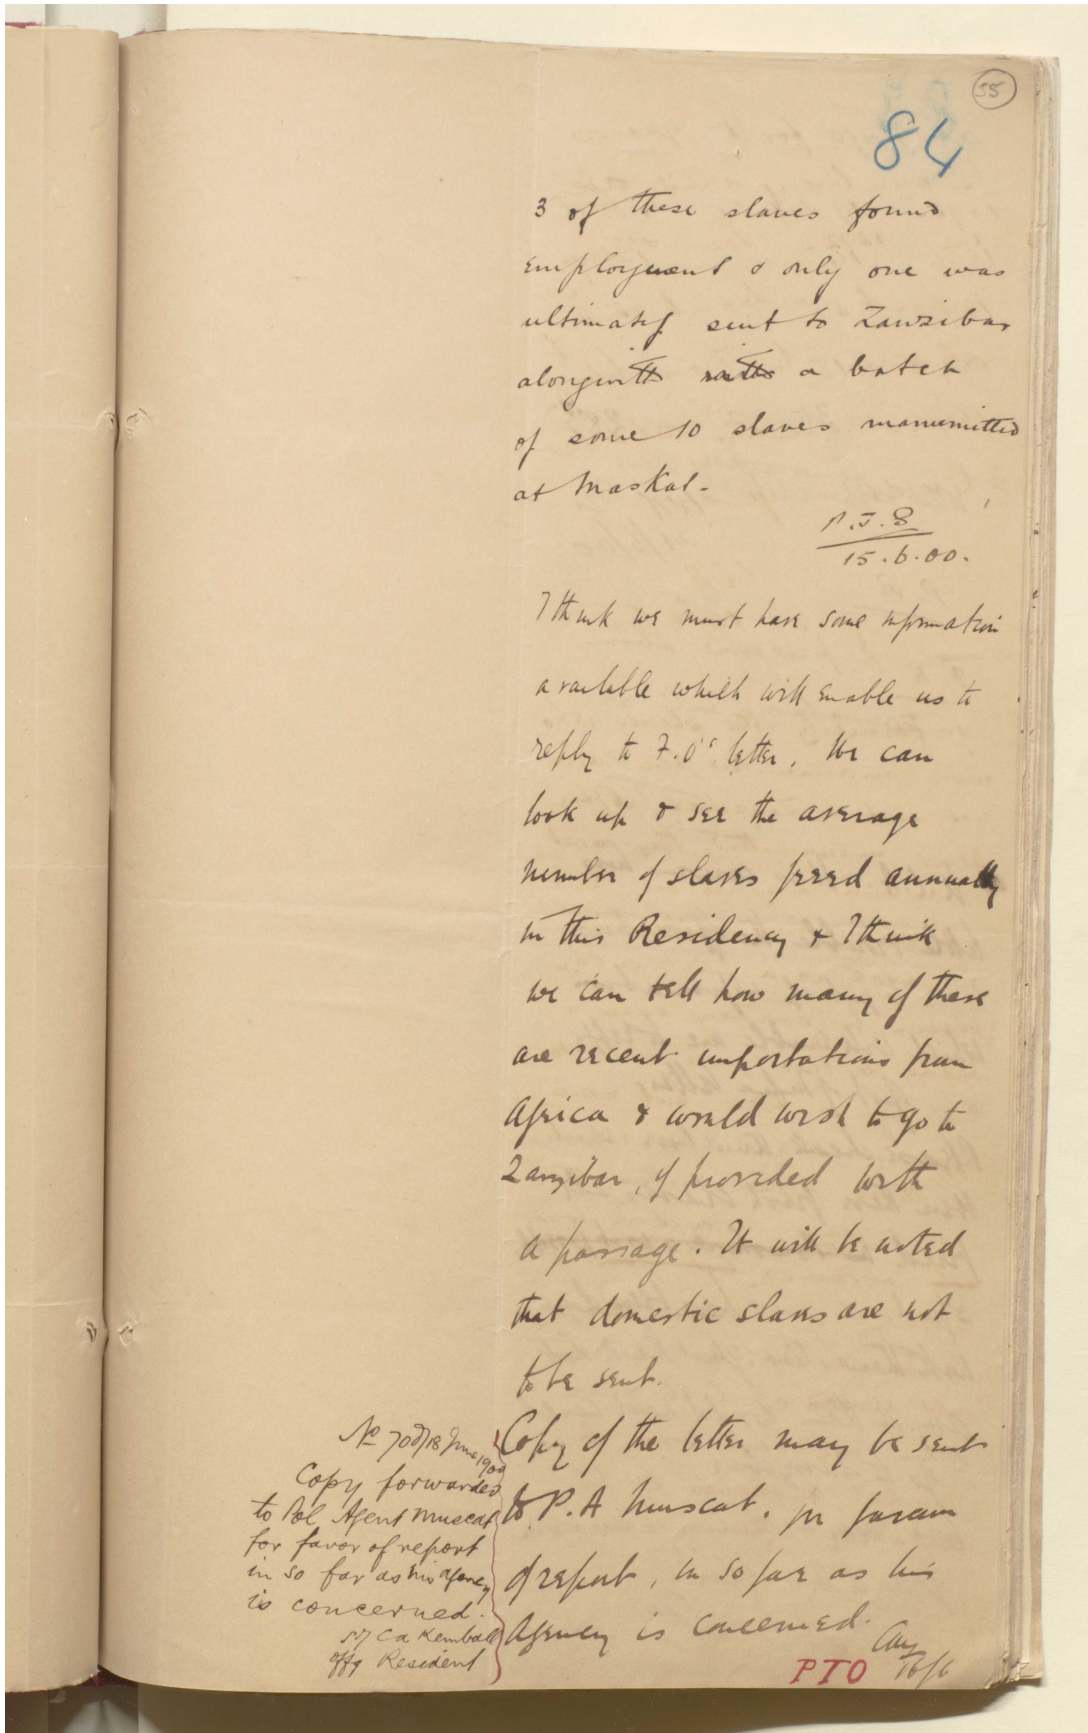 55
84
3 of these slaves found
employment & only one was
ultimately sent to Zanzibar
alongwith with a batch
of some 10 slaves manumitted
at Maskat-
P.J.G
15.6.00.
I think we must have some information
available which will enable us to
reply to F.O's letter. We can
look up & see the average
number of slaves freed annually
in this Residency & I think
we can tell how many of these
are recent importations from
Africa & would wish to go to
Zanzibar, if provided with
a passage. It will be noted
that domestic slaves are not
to be sent.
Copy of the letter may be sent
to P.A Muscat, for favour
of report, in so far as his
Agency is concerned.
16/6
PTO
No 70 d/18 June 1900
Copy forwarded
to Pol Agent Muscat
for favor of report
in so far as his agency
is concerned.
Sd/ C A Kemball
Offg Resident